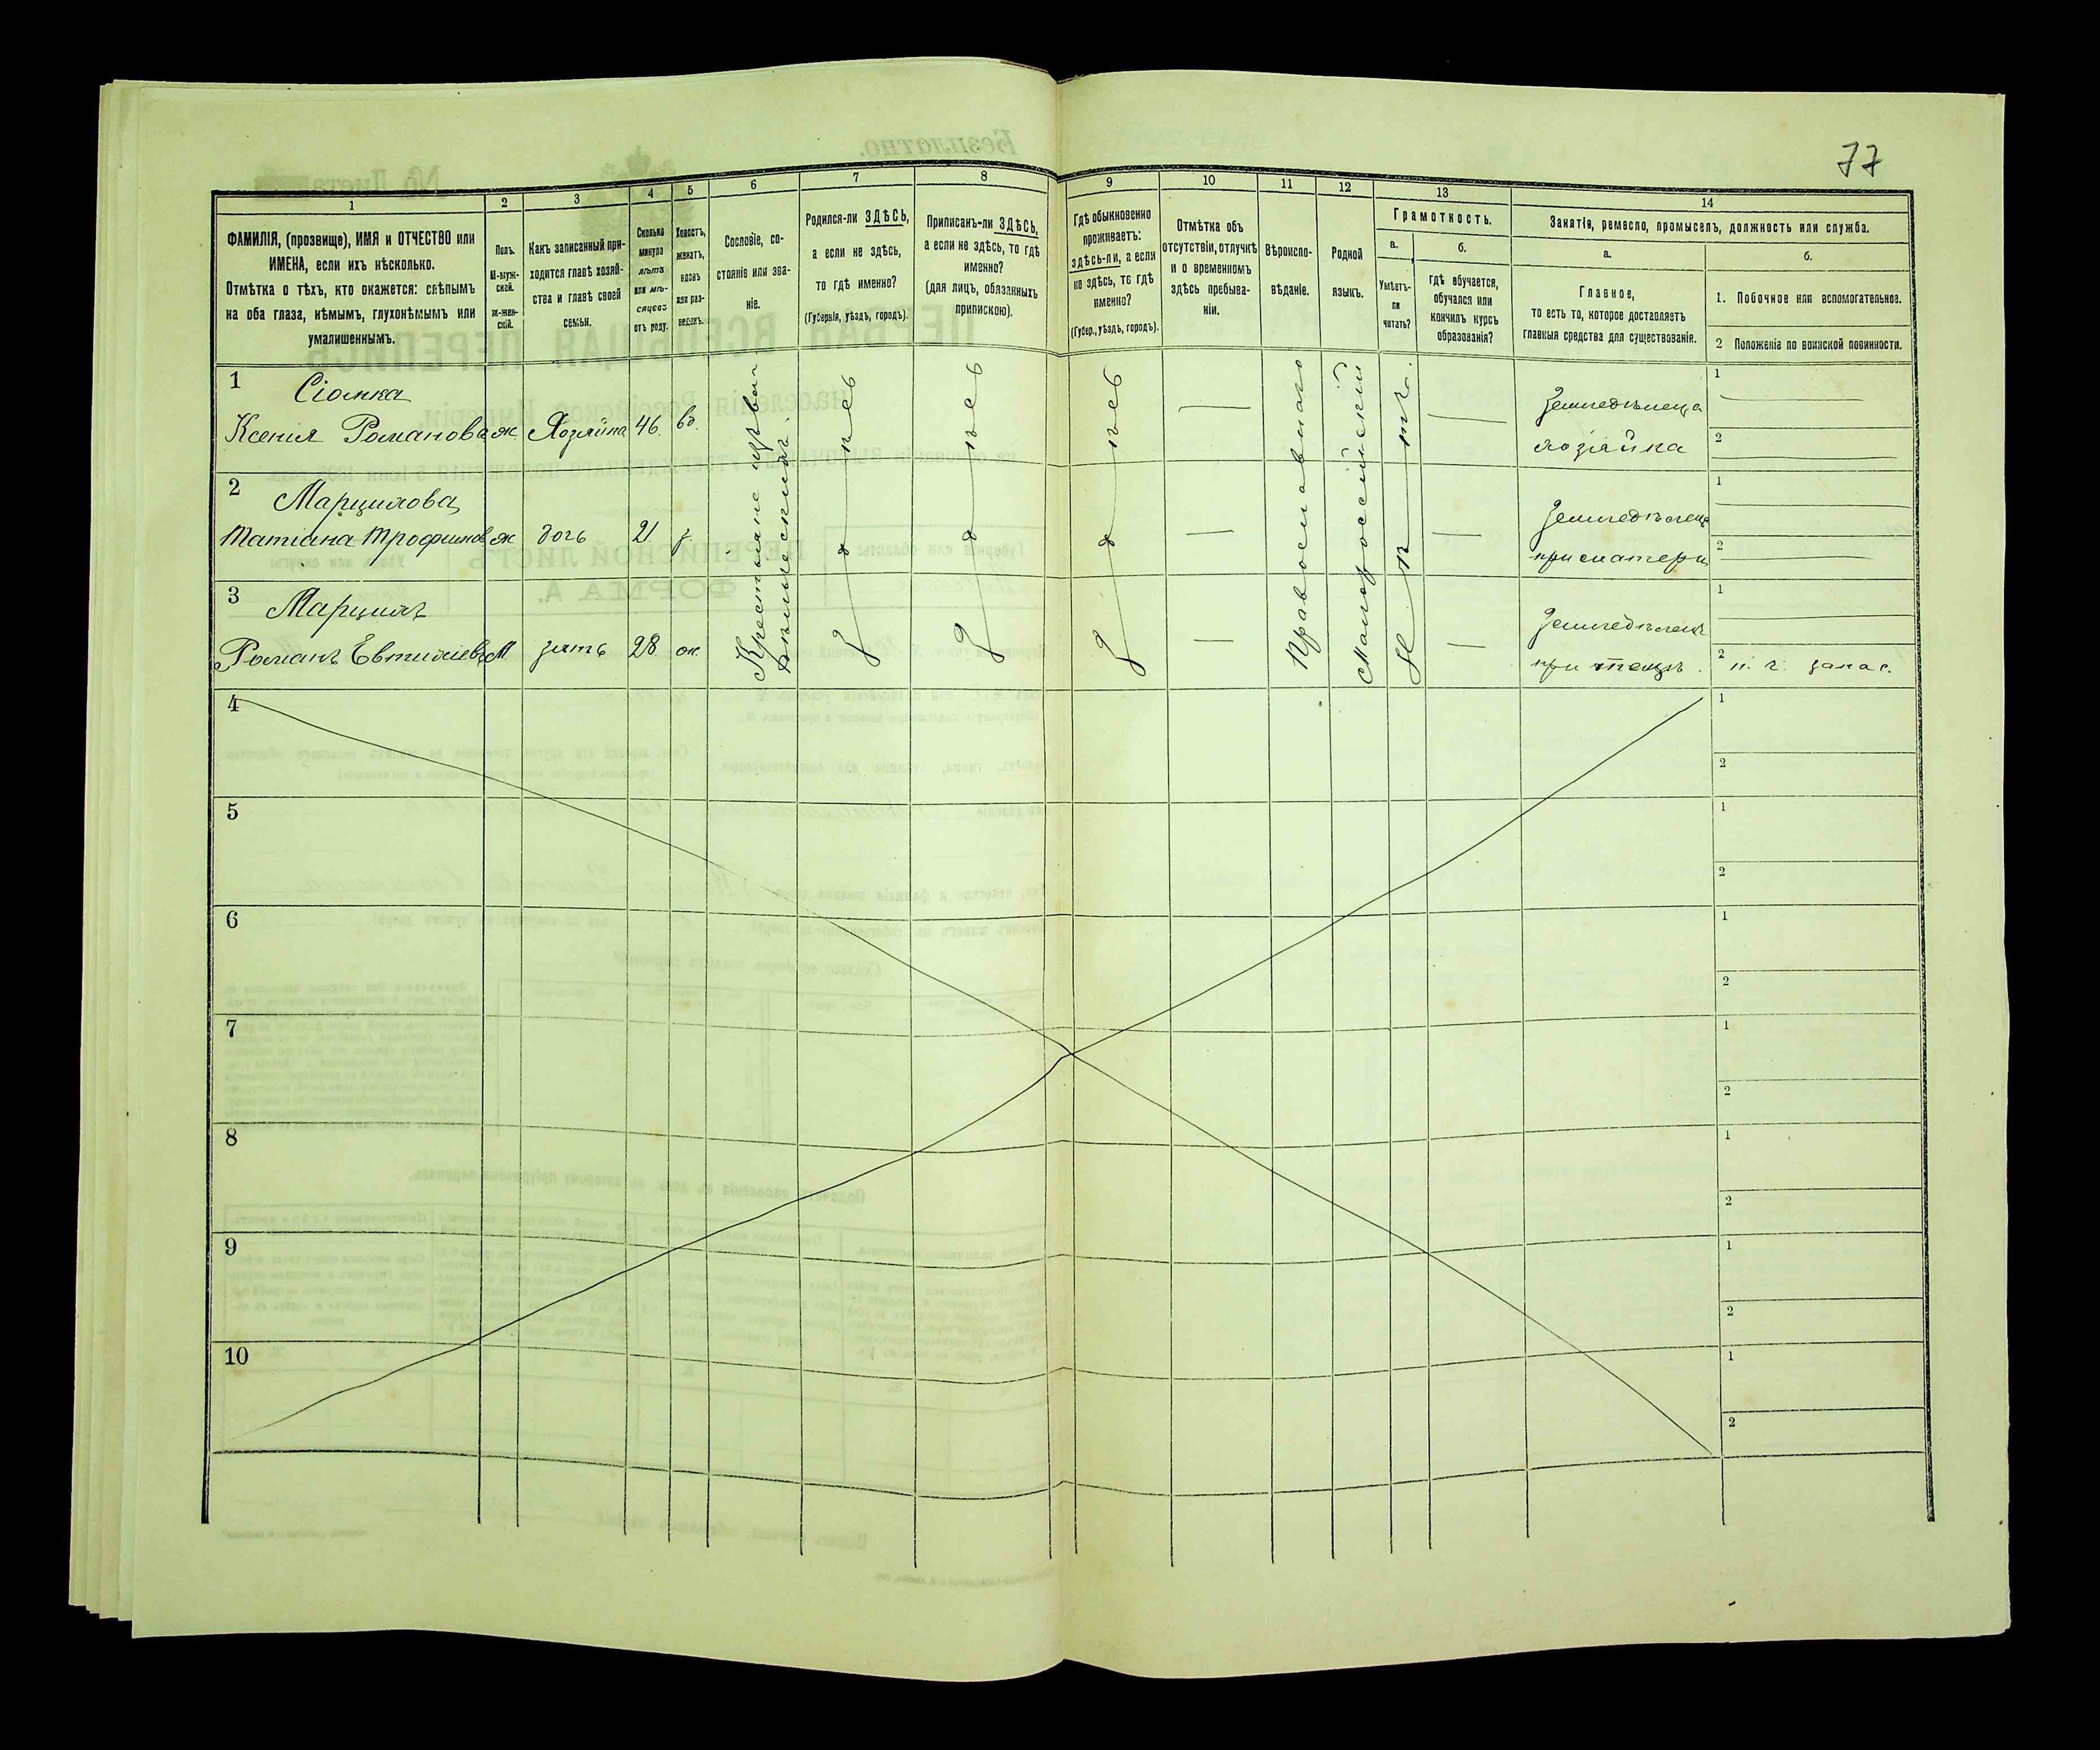 77
1
2
3
4
5
6
7
8
9
10
11
12
13
14
ФАМИЛІЯ, (прозвище), ИМЯ и ОТЧЕСТВО или
ИМЕНА, если ихъ нѣсколько.
Отмѣтка о тѣхъ, кто окажется: слѣпымъ
на оба глаза, нѣмымъ, глухонѣмымъ или
умалишеннымъ.
Полъ.
М-муж-
ской.
ж-жен-
скій.
Какъ записанный при-
ходится главѣ хозяй-
ства и главѣ своей
семьи.
Сколько
минуло
лѣтъ
или мѣ-
сяцевъ
отъ роду.
Холостъ,
женатъ,
вдовъ
или раз-
веденъ.
Сословіе, со-
стояніе или зва-
ніе.
Родился-ли ЗДѢСЬ,
а если не здѣсь,
то гдѣ именно?
(Губернія, уѣздъ, городъ).
Приписанъ-ли ЗДѢСЬ,
а если не здѣсь, то гдѣ
именно?
(для лицъ, обязанныхъ
припискою).
Гдѣ обыкновенно
проживаетъ:
здѣсь-ли, а если
не здѣсь, то гдѣ
именно?
(Губер., уѣздъ, городъ).
Отмѣтка объ
отсутствіи, отлучкѣ
и о временномъ
здѣсь пребыва-
ніи.
Вѣроиспо-
вѣданіе.
Родной
языкъ.
Грамотность.
а.
Умѣетъ-
ли
читать?
б.
Гдѣ обучается,
обучался или
кончилъ курсъ
образованія?
Занятіе, ремесло, промыселъ, должность или служба.
а.
Главное,
то есть то, которое доставляетъ
главныя средства для существованія.
б.
1. Побочное или вспомогательное.
2 Положеніе по воинской повинности.
1 Сіомка
Ксенія Романова ж Хозяйка 46 вд.
Земледѣлица
хозяйка
1
2
2 Марцинова
Татіана Трофимов ж дочь 21 з.
при матери
1
2
3 Марцинъ
Романъ Евтихіевъ М. зять 28 ж
при тещѣ.
1
2 запас.
Крестьяне
здѣсь
здѣсь
здѣсь
Православнаго
Малороссійскій
Нѣтъ.
4
1
2
5
1
2
6
1
2
7
1
2
8
1
2
9
1
2
10
1
2